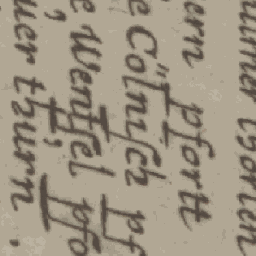 ern pfortt
e Cölnisch pf
e Wentzel pfo
uer thurn.